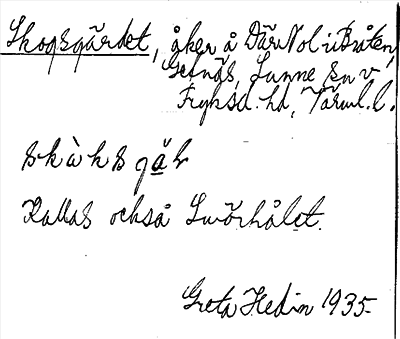 Skogsgärdet, åker å Där Nol i Bråten,
Getnäs, Sunne sn V,
Fryksd. hd, Värml. l.
skàksgä̀ḷ
Kallas också Smörhålet.
Greta Hedin 1935.